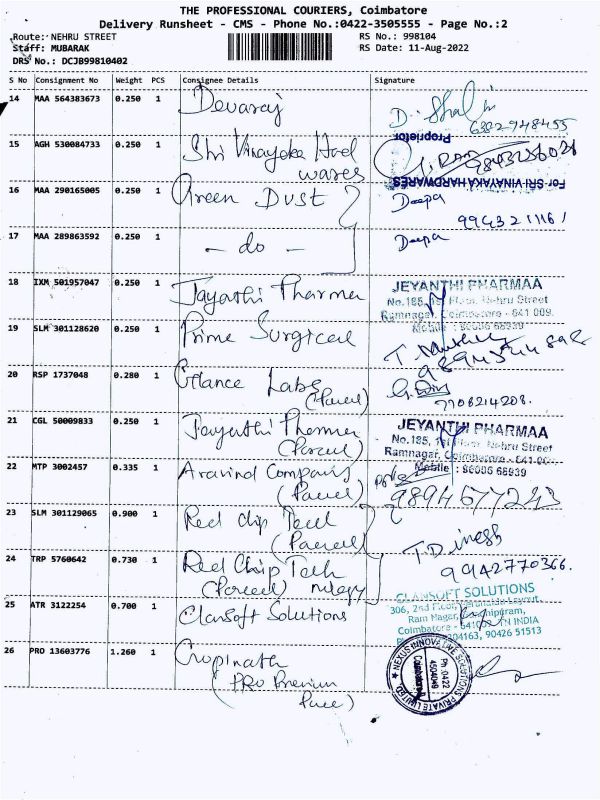 THE PROFESSIONAL COURIERS, Coimbatore
Delivery Runsheet - CMS - Phone No.:0422-3505555 - Page No.:2
Route: NEHRU STREET
RS No.: 998104
Staff: MUBARAK
RS Date: 11-Aug-2022
DRS No.: DCJB99810402
S No Consignment No Weight PCS Consignee Details Signature
14 MAA 564383673 0.250 1 Devaraj
6382948455
15 AGH 530084733 0.250 1 Shri Vinayaka Hard
wares
Proprietor
For SRI VINAYAKA HARDWARES
16 MAA 290165005 0.250 1 Green Dust Deepa
9943211161
17 MAA 289863592 0.250 1 - do - Deepa
18 IXM 501957047 0.250 1 Jayathi Pharma
JEYANTHI PHARMAA
No.185, 1st Floor, Nehru Street
Ramnagar, Coimbatore - 641 009.
Mobile : 98086 66939
19 SLM 301128620 0.250 1 Prime Surgical
20 RSP 1737048 0.280 1 Glance Labs
(Parcel)
7708214208.
21 CGL 50009833 0.250 1 Jayathi Pharma
(Parcel)
JEYANTHI PHARMAA
No.185, 1st Floor, Nehru Street
Ramnagar, Coimbatore - 641 009.
Mobile : 98086 66939
22 MTP 3002457 0.335 1 Aravind Company
(Parcel)
9894577243
23 SLM 301129065 0.900 1 Red Chip Tech
(Parcel)
T. Dinesh
9942770366.
24 TRP 5760642 0.730 1 Red Chip Tech
(Parcel)
25 ATR 3122254 0.700 1 ClanSoft Solutions
CLANSOFT SOLUTIONS
306, 2nd Floor,
Ram Nagar,
Coimbatore - TN INDIA
304163, 90426 51513
26 PRO 13603776 1.260 1 Gopinath
(PRO Premium
NEXUS INNOVATIVE SOLUTIONS PRIVATE LIMITED
Ph: 0422
4504049